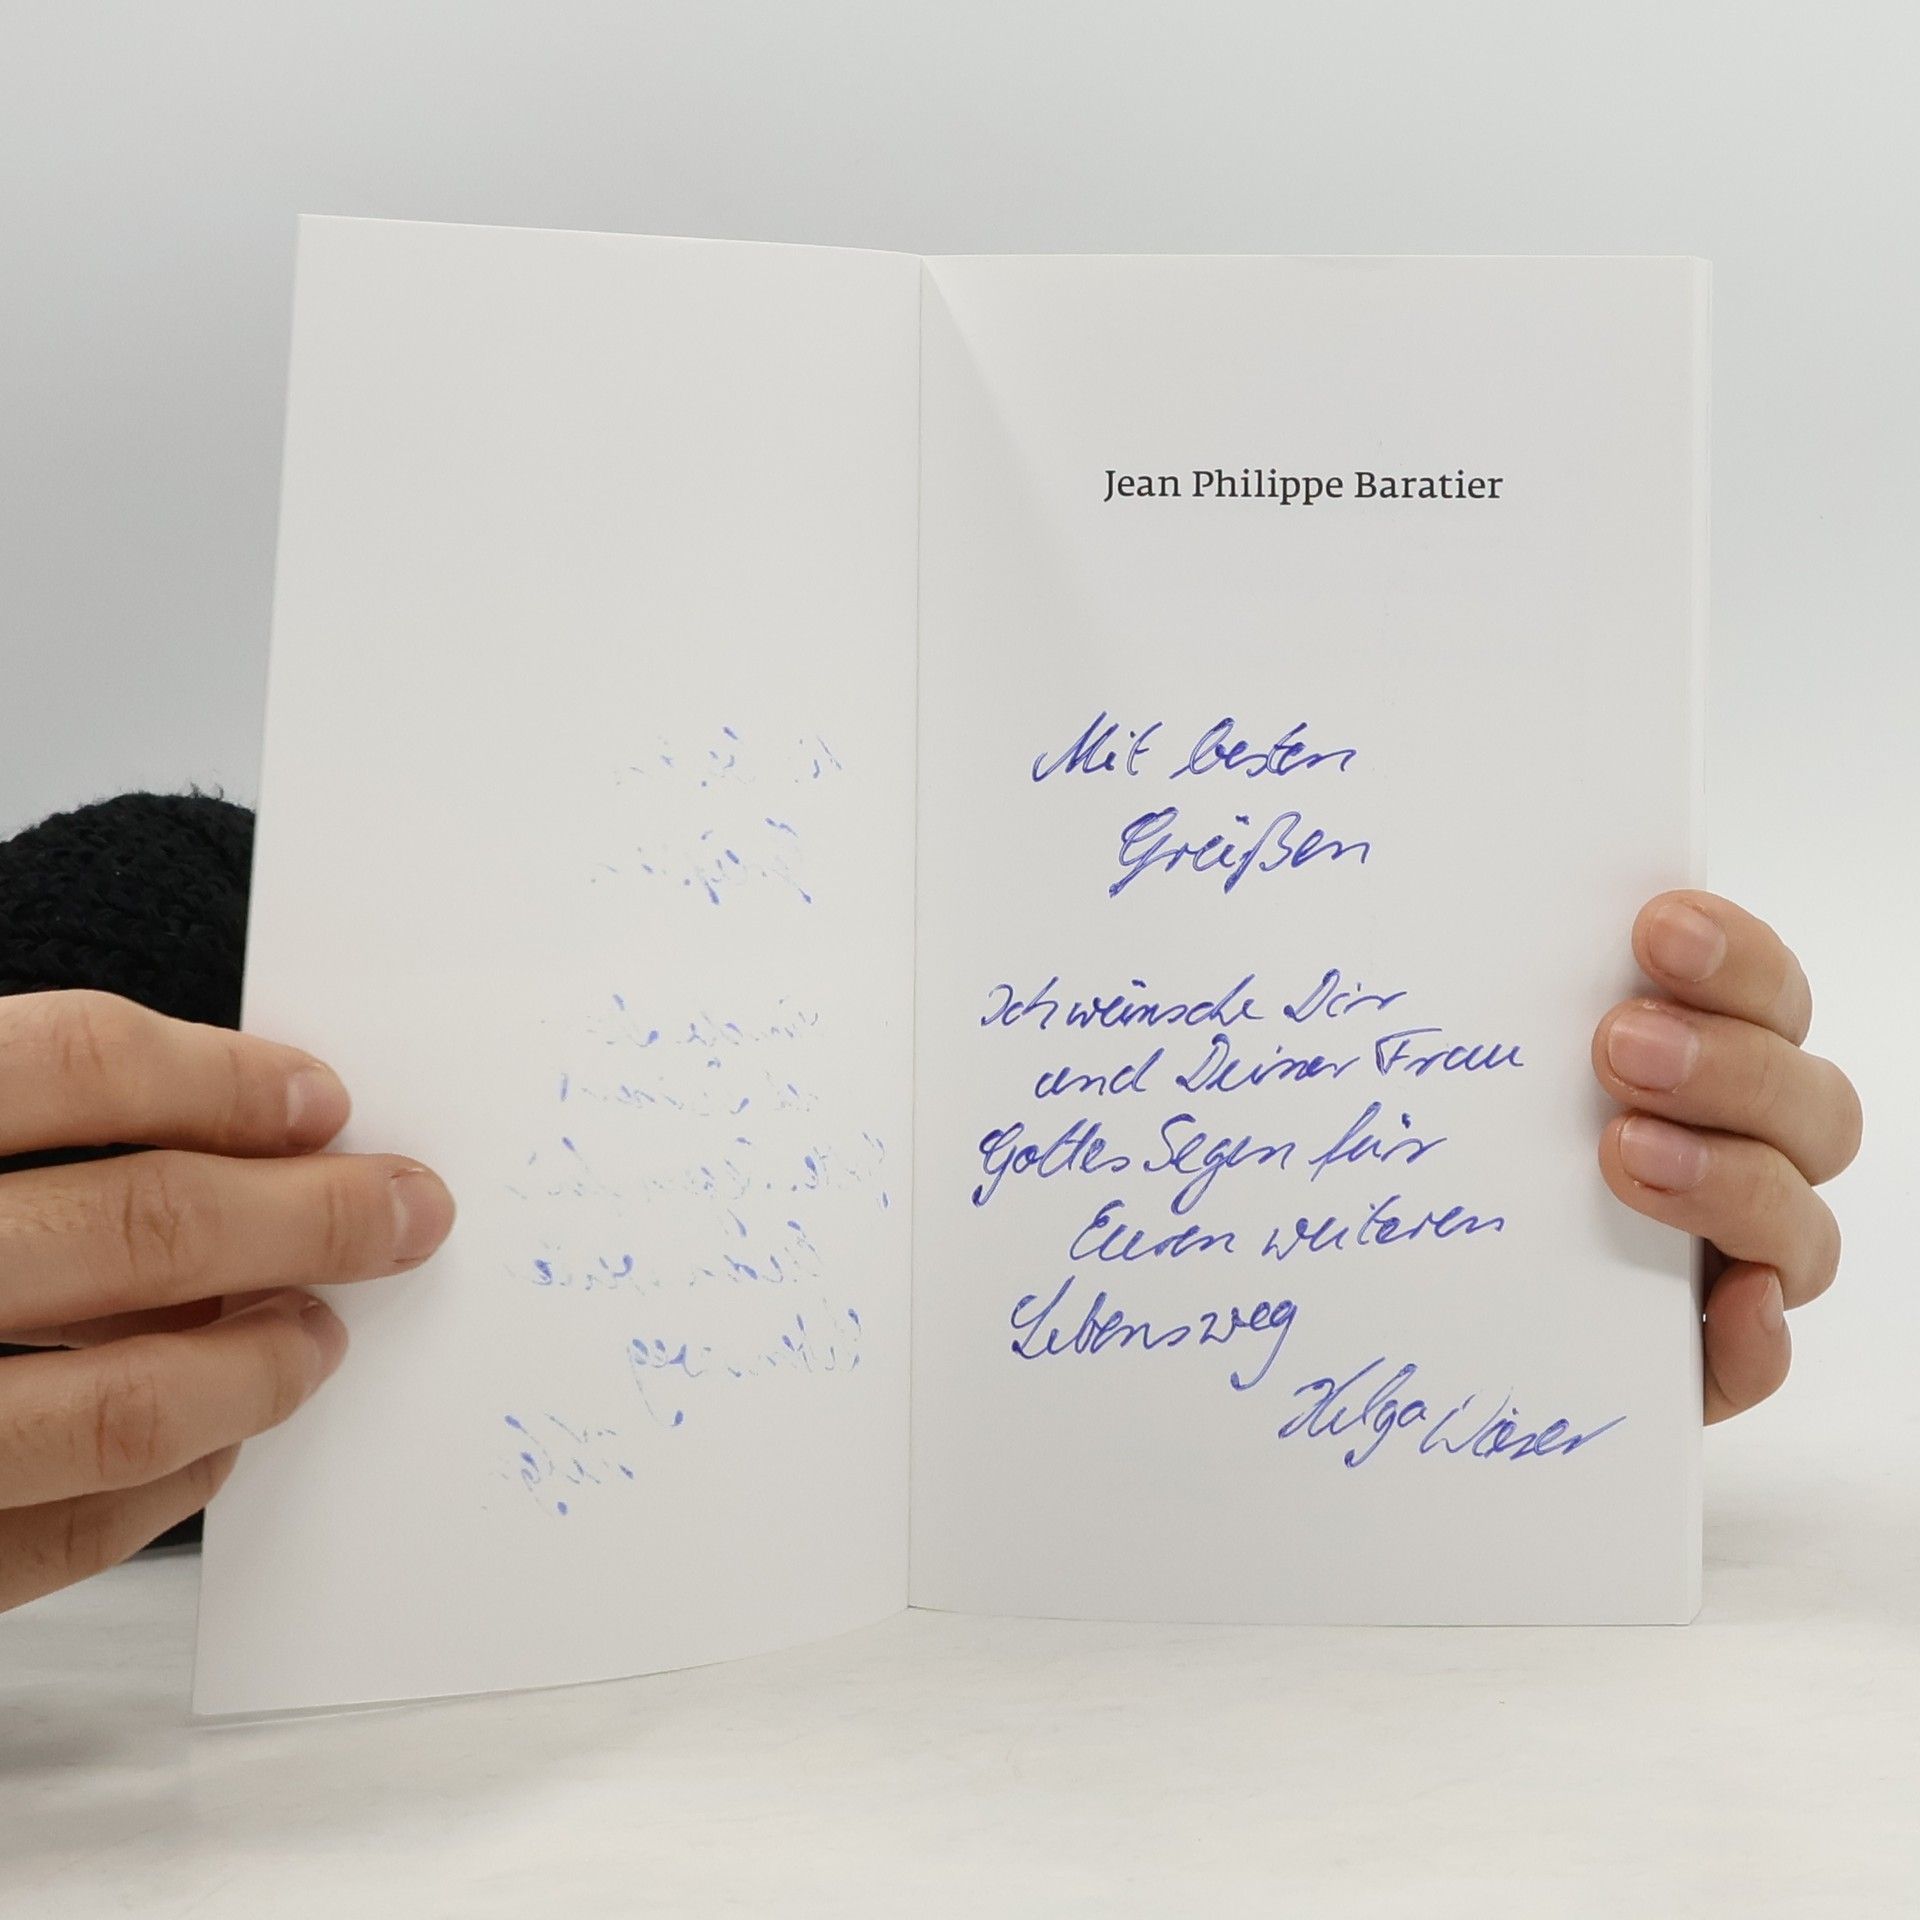 Jean Philippe Baratier
Mit besten
Grüßen
Ich wünsche Dir
und Deiner Frau
Gottes Segen für
Euren weiteren
Lebensweg
Helga Wieser